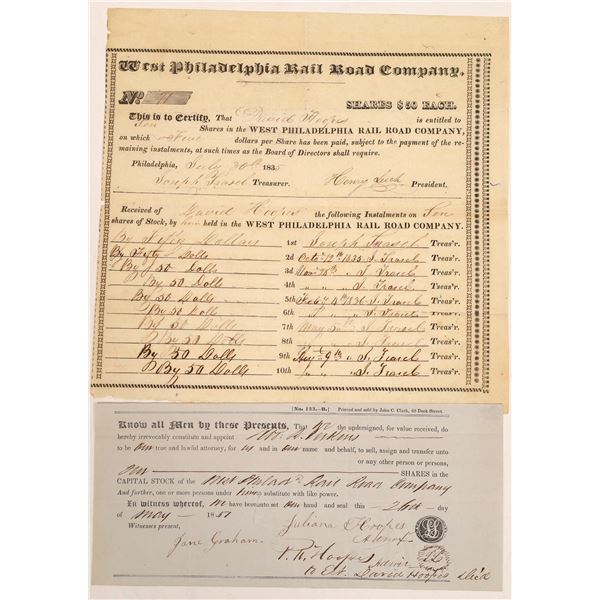 West Philadelphia Rail Road Company.
No. 11 SHARES $50 EACH.
This is to Certify, That David Hoopes is entitled to
Ten Shares in the WEST PHILADELPHIA RAIL ROAD COMPANY,
on which Five dollars per Share has been paid, subject to the payment of the re-
maining instalments, at such times as the Board of Directors shall require.
Philadelphia, July 30th 1835
Joseph Trasel Treasurer. Henry Leech President.
Received of David Hoopes the following Instalments on Ten
shares of Stock, by him held in the WEST PHILADELPHIA RAIL ROAD COMPANY.
By Fifty Dollars 1st Joseph Trasel Treas'r.
By Fifty Dolls 2d Octo 12th 1835 J. Trasel Treas'r.
By 50 Dolls 3d Nov 25th " J. Trasel Treas'r.
By 50 Dolls 4th " " J. Trasel Treas'r.
By 50 Dolls 5th Feby 4th 1836 J. Trasel Treas'r.
By 50 Dolls 6th " " J. Trasel Treas'r.
By 50 Dolls 7th May " J. Trasel Treas'r.
By 50 Dolls 8th " " J. Trasel Treas'r.
By 50 Dolls 9th 9th " J. Trasel Treas'r.
By 50 Dolls 10th " " J. Trasel Treas'r.
[No. 123.-B.] Printed and sold by John C. Clark, 60 Dock Street.
Know all Men by these Presents, That we the undersigned, for value received, do
hereby irrevocably constitute and appoint Perkins
to be our true and lawful attorney, for us and in our name and behalf, to sell, assign and transfer unto
or any other person or persons,
SHARES, in the
CAPITAL STOCK of the West Philada Rail Road Company
And further, one or more persons under him to substitute with like power.
In witness whereof, we have hereunto set our hand and seal this 26th day
of May 1851
Witnesses present, Juliana Hoopes
Jane Graham
P. R. Hoopes Admr
to Est. David Hoopes